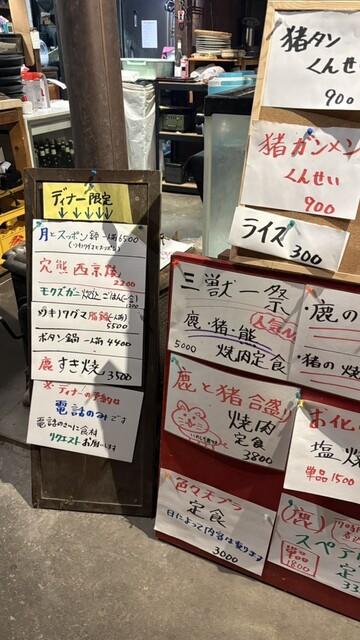 ディナー限定
↓↓↓↓↓
月とスッポン鍋 一人前 6500
(ツキノワグマとスッポン)
穴熊西京焼
2200
モクズガニ炊込ごはん(一合)
1200
ツキノワグマ脂鍋(一人前)
5500
ボタン鍋 一人前 4400
鹿すき焼 3500
※ディナーの予約は
電話のみです
電話のさいに食材
リクエストお願いします
猪タン
くんせい
900
猪ガンメン
くんせい
900
ライス 300
三獣一祭
人気No
鹿・猪・熊
5000 焼肉定食
鹿の
猪の
鹿と猪合盛り
焼肉
定食
3800
お化
塩焼
単品1500
色々天プラ
定食
日によって内容は変ります
3000
(鹿)
スペア
定
単品
1800
33